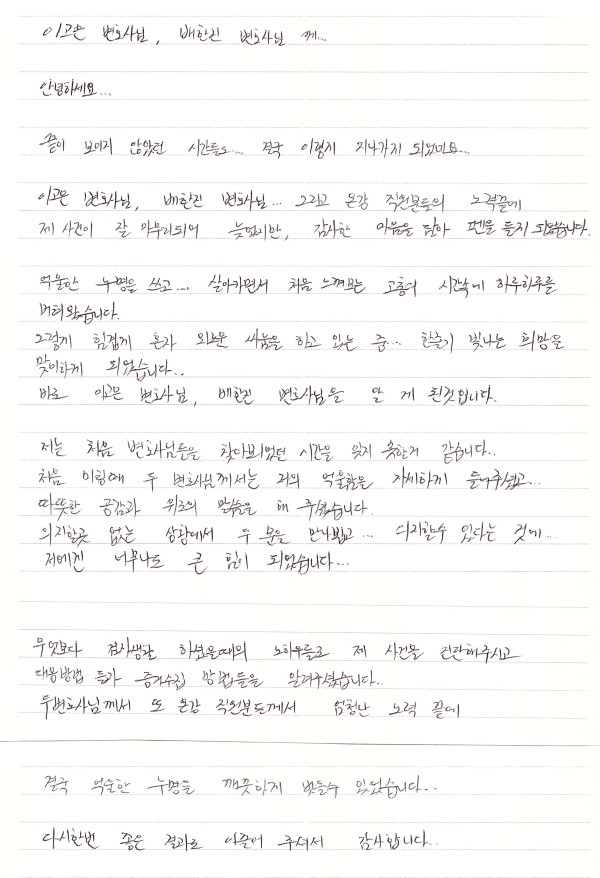 이고은 변호사님, 배한진 변호사님 께...
안녕하세요...
끝이 보이지 않았던 시간들도... 결국 이렇게 지나가게 되었네요...
이고은 변호사님, 배한진 변호사님... 그리고 온강 직원분들의 노력끝에
제 사건이 잘 마무리되어 늦었지만, 감사한 마음을 담아 펜을 들게 되었습니다.
억울한 누명을 쓰고... 살아가면서 처음 느껴보는 고통의 시간속에 하루하루를
버텨왔습니다.
그렇게 힘겹게 혼자 외로운 싸움을 하고 있는 중... 한줄기 빛나는 희망을
맞이하게 되었습니다..
바로 이고은 변호사님, 배한진 변호사님을 알 게 된것입니다.
저는 처음 변호사님들을 찾아뵈었던 시간을 잊지 못할거 같습니다..
처음 미팅에 두 변호사님께서는 저의 억울함을 자세하게 들어주셨고...
따뜻한 공감과 위로의 말씀을 해 주셨습니다.
의지할곳 없는 상황에서 두 분을 만나뵙고... 의지할수 있다는 것에..
저에겐 너무나도 큰 힘이 되었습니다...
무엇보다 검사생활 하셨을때의 노하우들로 제 사건을 진단해주시고
대응방법 들과 증거수집 방법들을 알려주셨습니다..
두변호사님께서 또 온강 직원분드께서 엄청난 노력 끝에
결국 억울한 누명을 깨끗하게 벗을수 있었습니다..
다시한번 좋은 결과로 이끌어 주셔서 감사합니다..